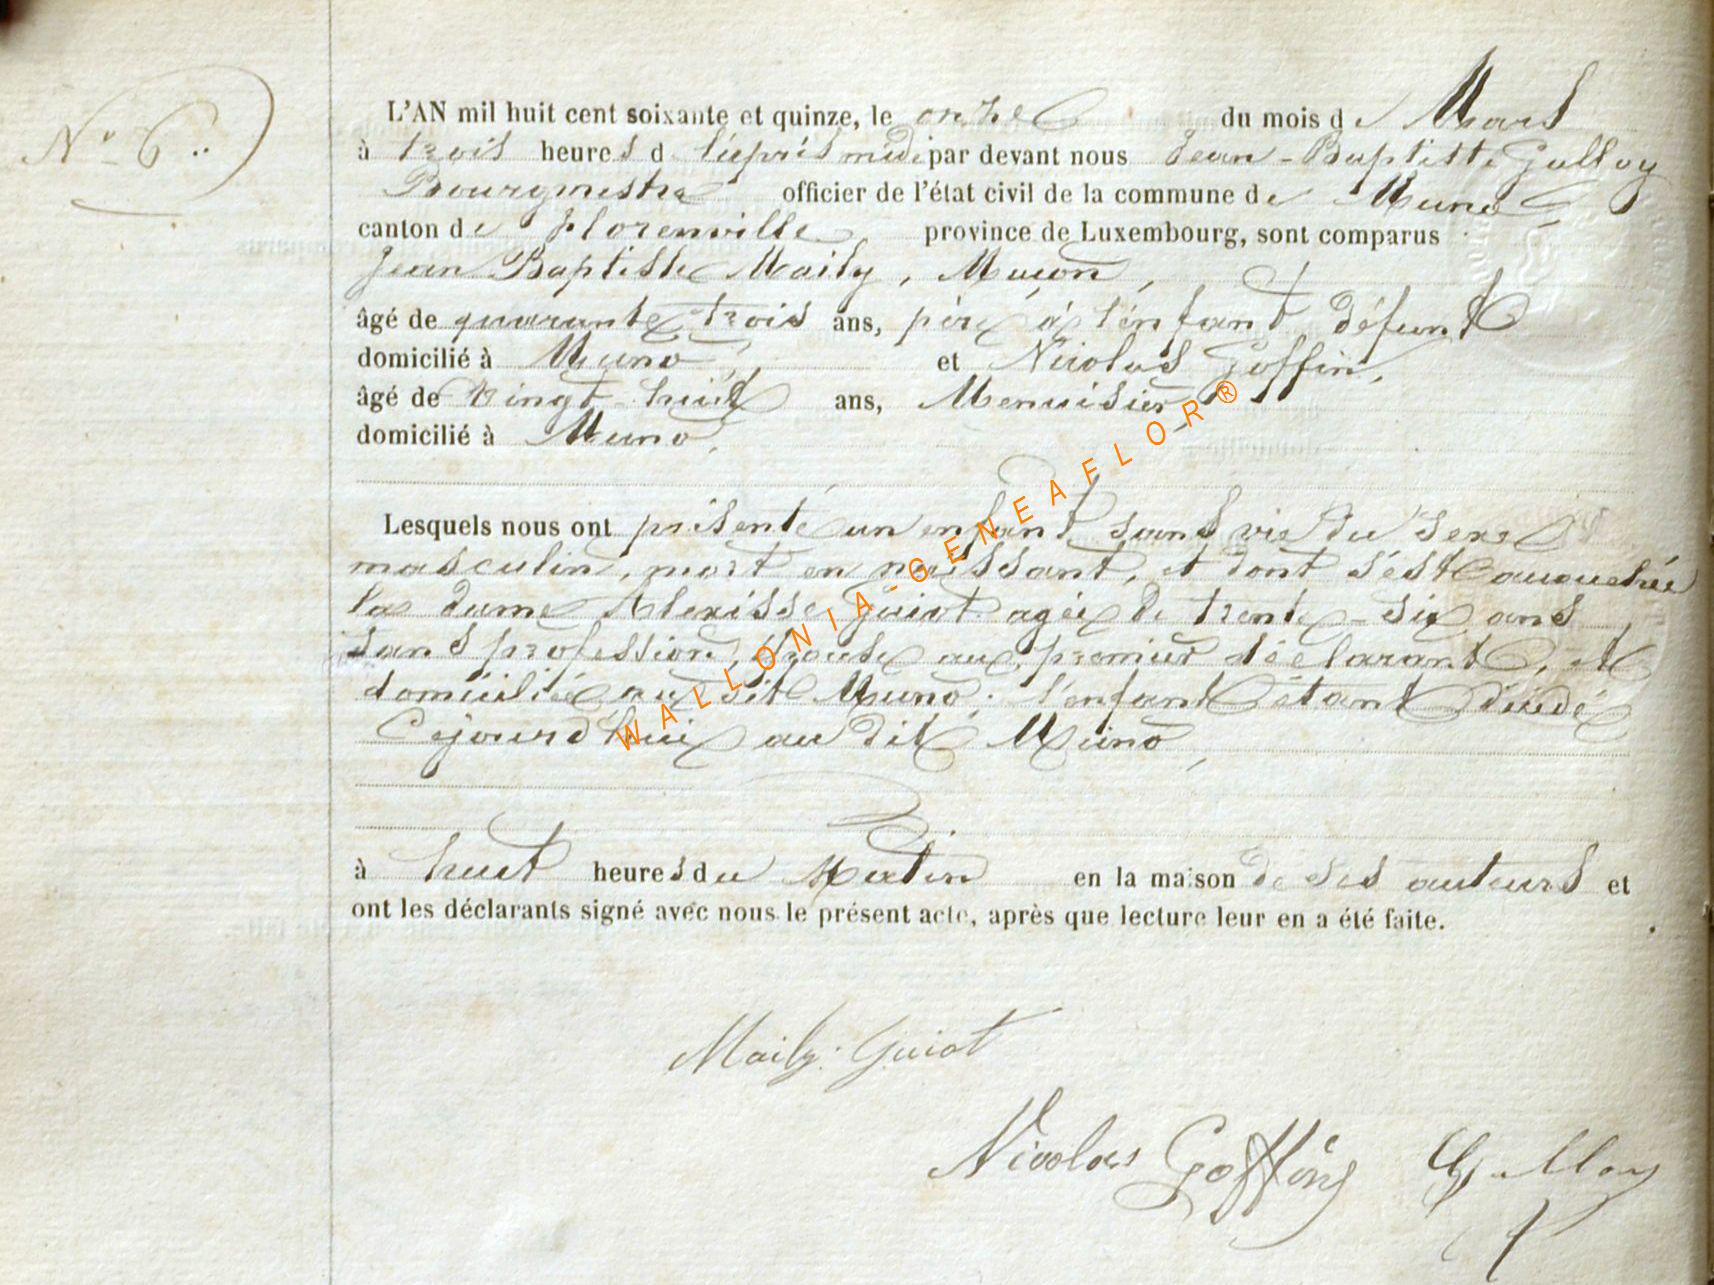 N° 6..
L'AN mil huit cent soixante et quinze, le onze du mois de Mars
à trois heures d l'après midi par devant nous Jean-Baptiste Galloy
Bourgmestre officier de l'état civil de la commune de Muno,
canton de florenville province de Luxembourg, sont comparus
Jean Baptiste Maily, Maçon,
âgé de quarante trois ans, père à l'enfant défunt
domicilié à Muno, et Nicolas Goffin,
âgé de vingt-huit ans, Menuisier
domicilié à Muno,
Lesquels nous ont présenté un enfant sans vie du sexe
masculin, mort en naissant, et dont s'est accouchée
la dame Alexisse Guiot agée de trente-six ans
sans profession, épouse au premier déclarant, et
domiciliée au dit Muno; l'enfant étant décédé
Cejourd'hui au dit Muno,
à huit heures du Matin en la maison de ses auteurs et
ont les déclarants signé avec nous le présent acte, après que lecture leur en a été faite.
Maily-Guiot
Nicolas Goffin Galloy
WALLONIA-GENEAFLOR®